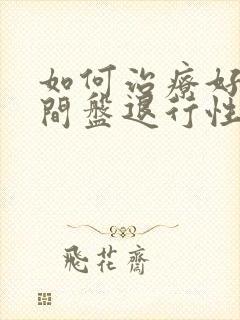 如何治療好
間盤退行性
飛花齋